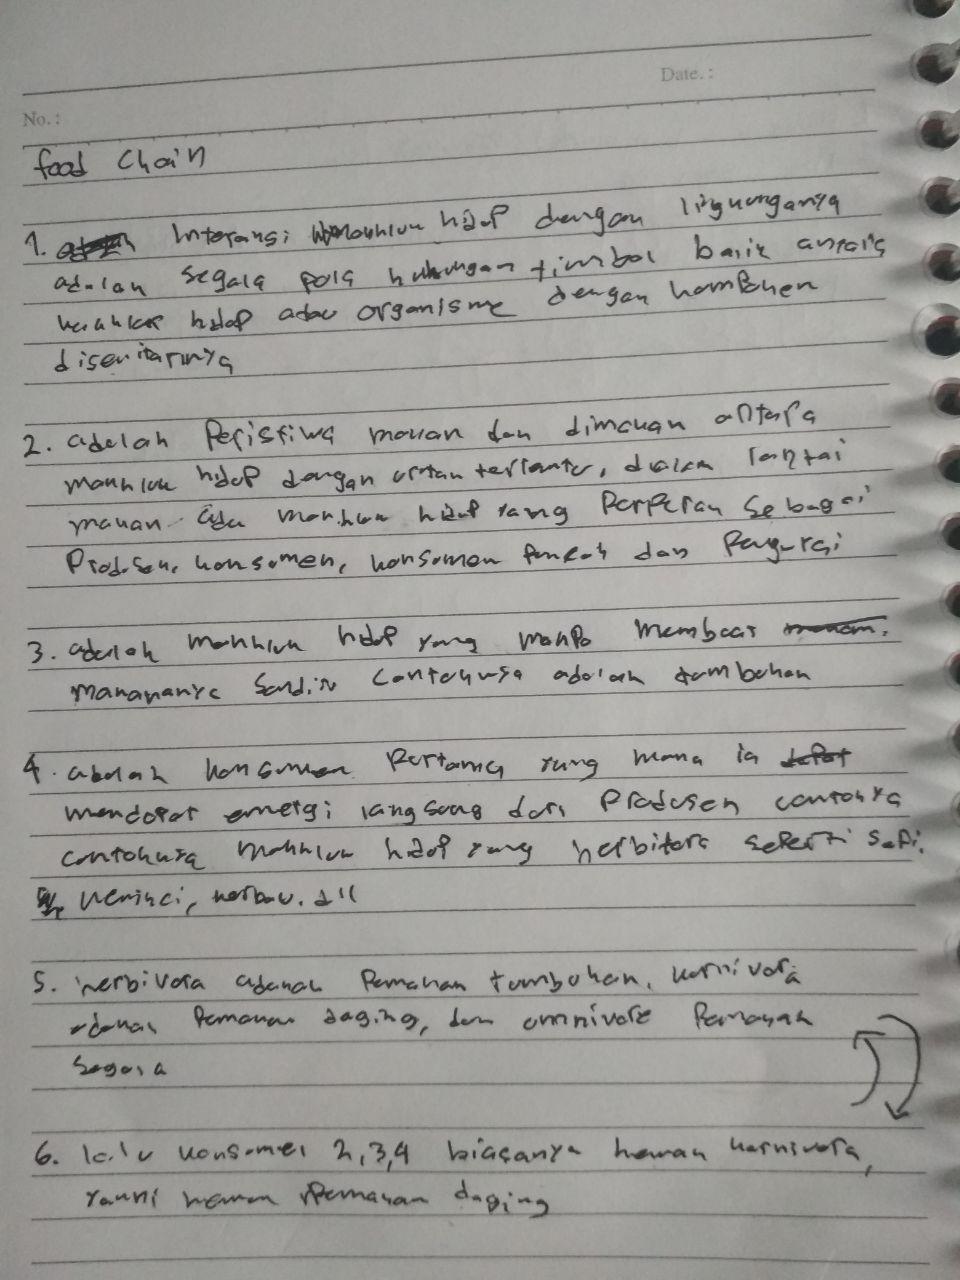 No.:
Date. :
food chain
1. Interaksi makhluk hidup dengan lingkunganya
adalah segala pola hubungan timbal balik antara
makhluk hidup atau organisme dengan komponen
disekitarnya
2. adalah peristiwa makan dan dimakan antara
makhluk hidup dengan urutan tertentu, dialam rantai
makan ada makhluk hidup yang perperan sebagai
Produsen, konsumen, konsumen puncak dan pengurai
3. adalah makhluk hidup yang mampu membuat
makananya sendiri contohnya adalah tumbuhan
4. adalah konsumen pertama yang mana ia
mendapat energi langsung dari produsen contohya
contohnya makhluk hidup yang herbifora seperti sapi,
kelinci, kerbau. dll
5. herbivora adalah pemakan tumbuhan, karnivora
adalah pemakan daging, dan omnivora pemakan
segala
6. lalu konsumen 2,3,4 biasanya hewan karnivora,
yakni hewan pemakan daging